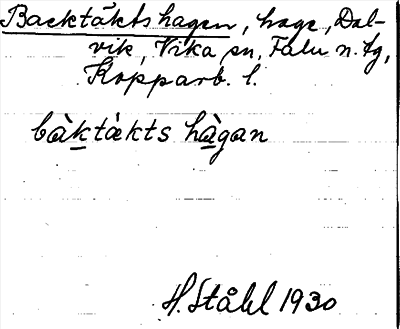 Backtäktshagen, hage, Dal-
vik, Vika sn, Falu n. tg,
Kopparb. l.
bàktàkts hàgan
H. Ståhl 1930